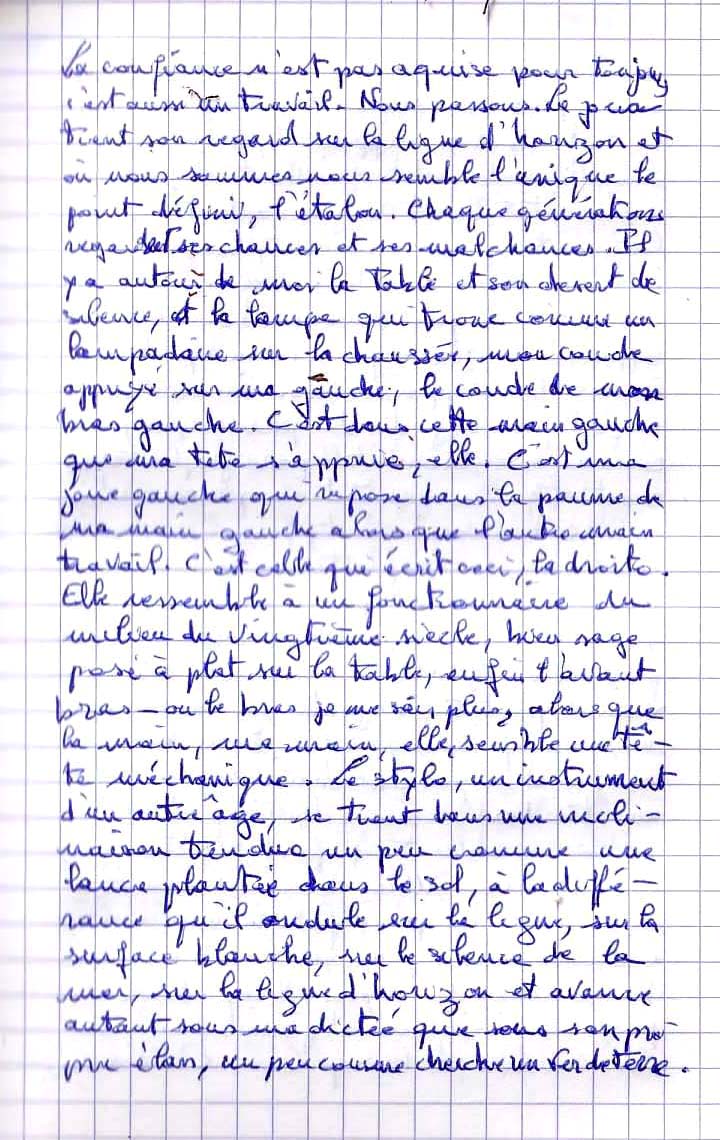 La confiance n'est pas aquise pour toujours
c'est aussi un travail. Nous passons. Le
tient son regard sur la ligne d'horizon et
où nous sommes nous semble l'unique le
point défini, l'étalon. Chaque générations
regardent ses chances et ses malchances. Il
y a autour de moi la table et son desert de
silence, et la lampe qui trone comme un
lampadaire sur la chaussée, mon coude
appuyé sur ma gauche, le coude de mon
bras gauche. C'est dans cette main gauche
que ma tete s'appuie, elle. C'est ma
joue gauche qui repose dans la paume de
ma main gauche alors que l'autre main
travail. C'est celle qui écrit ceci, la droite.
Elle ressemble à un fonctionnaire du
milieu du vingtième siècle, bien sage
posé à plat sur la table, enfin l'avant
bras – ou le bras je ne sais plus, alors que
la main, ma main, elle, semble une tê-
te méchanique. Le stylo, un instrument
d'un autre âge, se tient dans une incli-
naison tendue un peu comme une
lance plantée dans le sol, à la diffé-
rence qu'il ondule sur la ligne, sur la
surface blanche, sur le silence de la
mer, sur la ligne d'horizon et avance
autant sous ma dictée que sous son pro-
pre élan, un peu comme cherche un ver de terre.